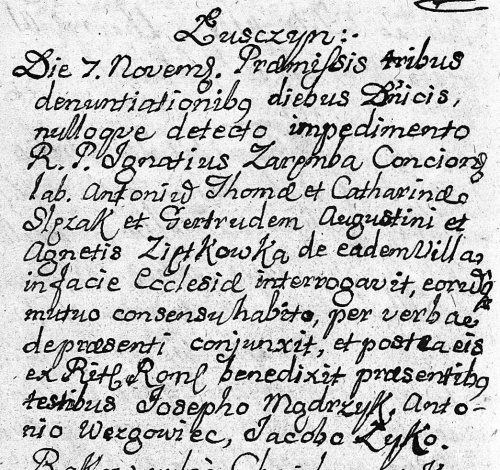 Łusczyn:
Die 7. Novemb. Præmissis tribus
denuntiationibq diebus Dnicis,
nulloque detecto impedimento
R. P. Ignatius Zaremba Conciona
lab. Antoniū Thomæ et Catharinæ
Slęzak et Gertrudem Augustini et
Agnetis Ziętkowką de eadem Villa
in facie Ecclesiæ interrogavit, eorudq
mutuo consensu habito, per verba
de præsenti conjunxit, et postea eis
ex Rit. Rom. benedixit præsentibq
testibus Josepho Mądrzyk, Anto-
nio Wezgowiec, Jacobo Zyko.